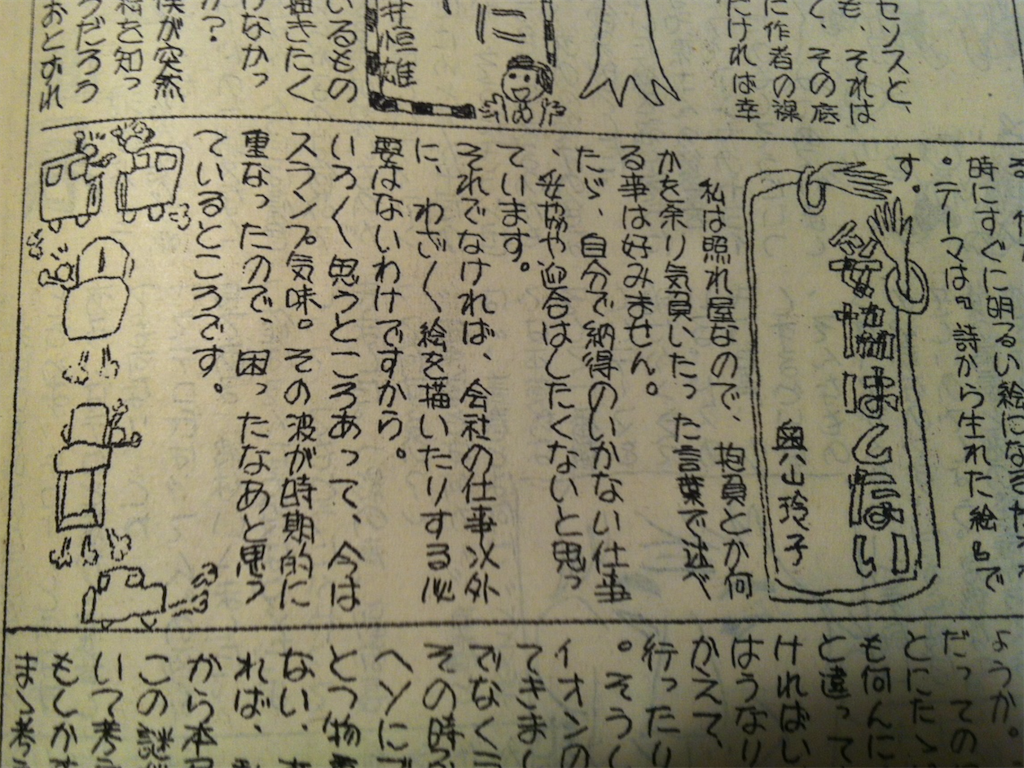 センスと、
も、それは
く、その底
に作者の裸
たければ幸
に
井恒雄
いるもの
描きたく
けなかっ
か？
僕が突然
料を知っ
うだろう
おとずれ
時にすぐに明るい絵になるだろ
。テーマは『詩から生れた絵』で
す。
妥協はしない
奥山玲子
私は照れ屋なので、抱負とか何
かを余り気負いたった言葉で述べ
る事は好みません。
たゞ、自分で納得のいかない仕事
、妥協や迎合はしたくないと思っ
ています。
それでなければ、会社の仕事以外
に、わざ〱絵を描いたりする必
要はないわけですから。
いろ〱思うところあって、今は
スランプ気味。その波が時期的に
重なったので、困ったなあと思う
ているところです。
ようか。
だっての
とにたゝ
も何んに
と違って
ければい
はうなり
かえて、
行ったり
。そうし
イオンの
てきまし
でなくラ
その時ら
ヘソにご
とつ物
ない、
れば、
から本
この謎
いて考
もしかす
まく考